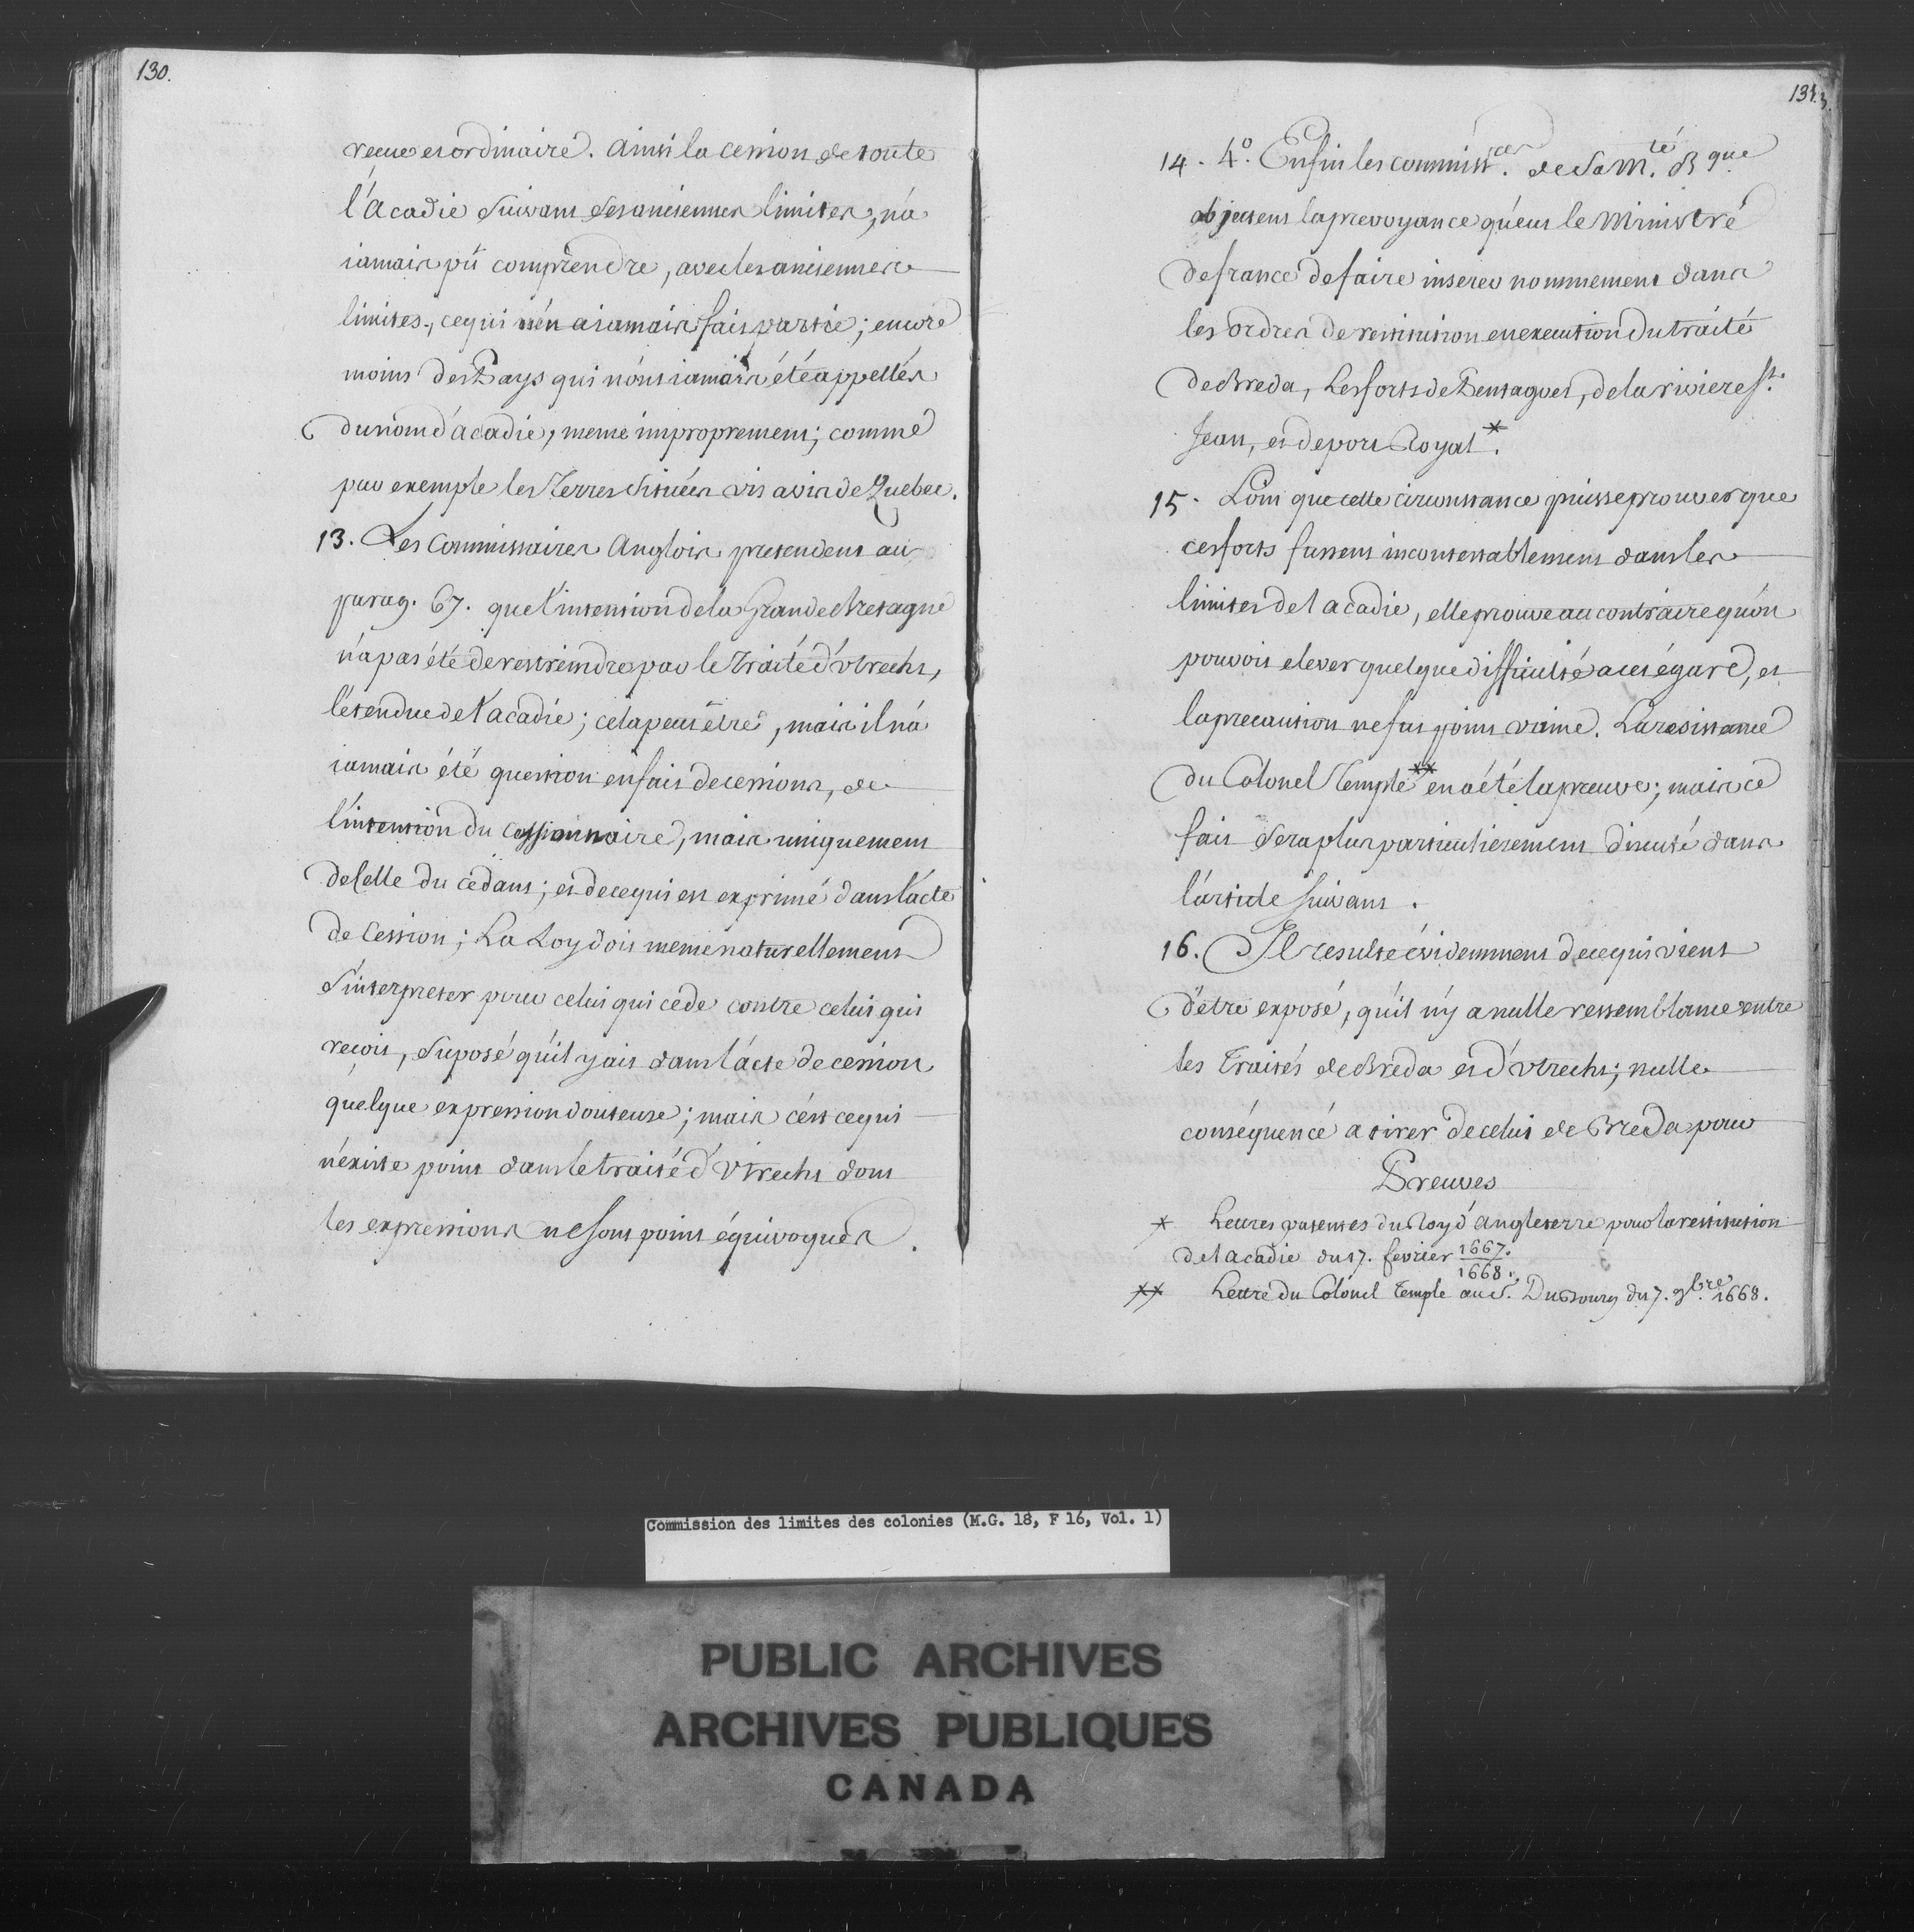 130.
reçue et ordinaire. Ainsi la cession de toute
l'Acadie Suivant Ses anciennes limites, n'a
iamais pû comprendre, avec les anciennes
limites, ce qui n'en a iamais fait partie; encore
moins des Pays qui n'ont iamais été appellés
du nom d'acadie, meme improprement; comme
par exemple les Terres Situées vis a vis de Quebec.
13. Les Commissaires Anglois pretendent au
parag. 67. que l'intention de la Grande Bretagne
n'a pas été de restreindre par le Traité d'Utrecht,
l'etendue de l'acadie; cela peut être, mais il n'a
iamais été question en fait de cessions, de
l'intention du Cessionnaire, mais uniquement
de Celle du cédant; et de ce qui est exprimé dans l'acte
de Cession; La Loy doit meme naturellement
S'interpreter pour celui qui céde contre celui qui
reçoit, Suposé qu'il y ait dans l'acte de cession
quelque expression douteuse; mais c'est ce qui
n'existe point dans le traité d'Utrecht dont
les expressions ne Sont point équivoques.
131.
14. 4.º Enfin les commiss.ces de Sa M.té B.que
objectent la prevoyance qu'eut le Ministre
de france de faire inserer nommement dans
les ordres de restitution en execution du traité
de Breda, Les forts de Pentagoet, de la riviere S.t
Jean, et de port Royal *.
15. Loin que cette circonstance puisse prouver que
ces forts fussent incontestablement dans les
limites de l acadie, elle prouve au contraire qu'on
pouvoit elever quelque difficulté a cet égard, et
la precaution ne fut point vaine. La resistance
du Colonel Temple ** en a été la preuve; mais ce
fait Sera plus particulierement discuté dans
l'article Suivant.
16. Il resulte évidemment de ce qui vient
d'être exposé, qu'il n'y a nulle ressemblance entre
les Traités de Breda et d'Utrecht; nulle
conséquence a tirer de celui de Breda pour
Preuves
* Lettres patentes du Roy d'Angleterre pour la restitution
de l acadie du 17. fevrier 1667./1668.
** Lettre du Colonel Temple au S. DuBourg du 7. 9.bre 1668.
Commission des limites des colonies (M.G. 18, F 16, Vol. 1)
PUBLIC ARCHIVES
ARCHIVES PUBLIQUES
CANADA